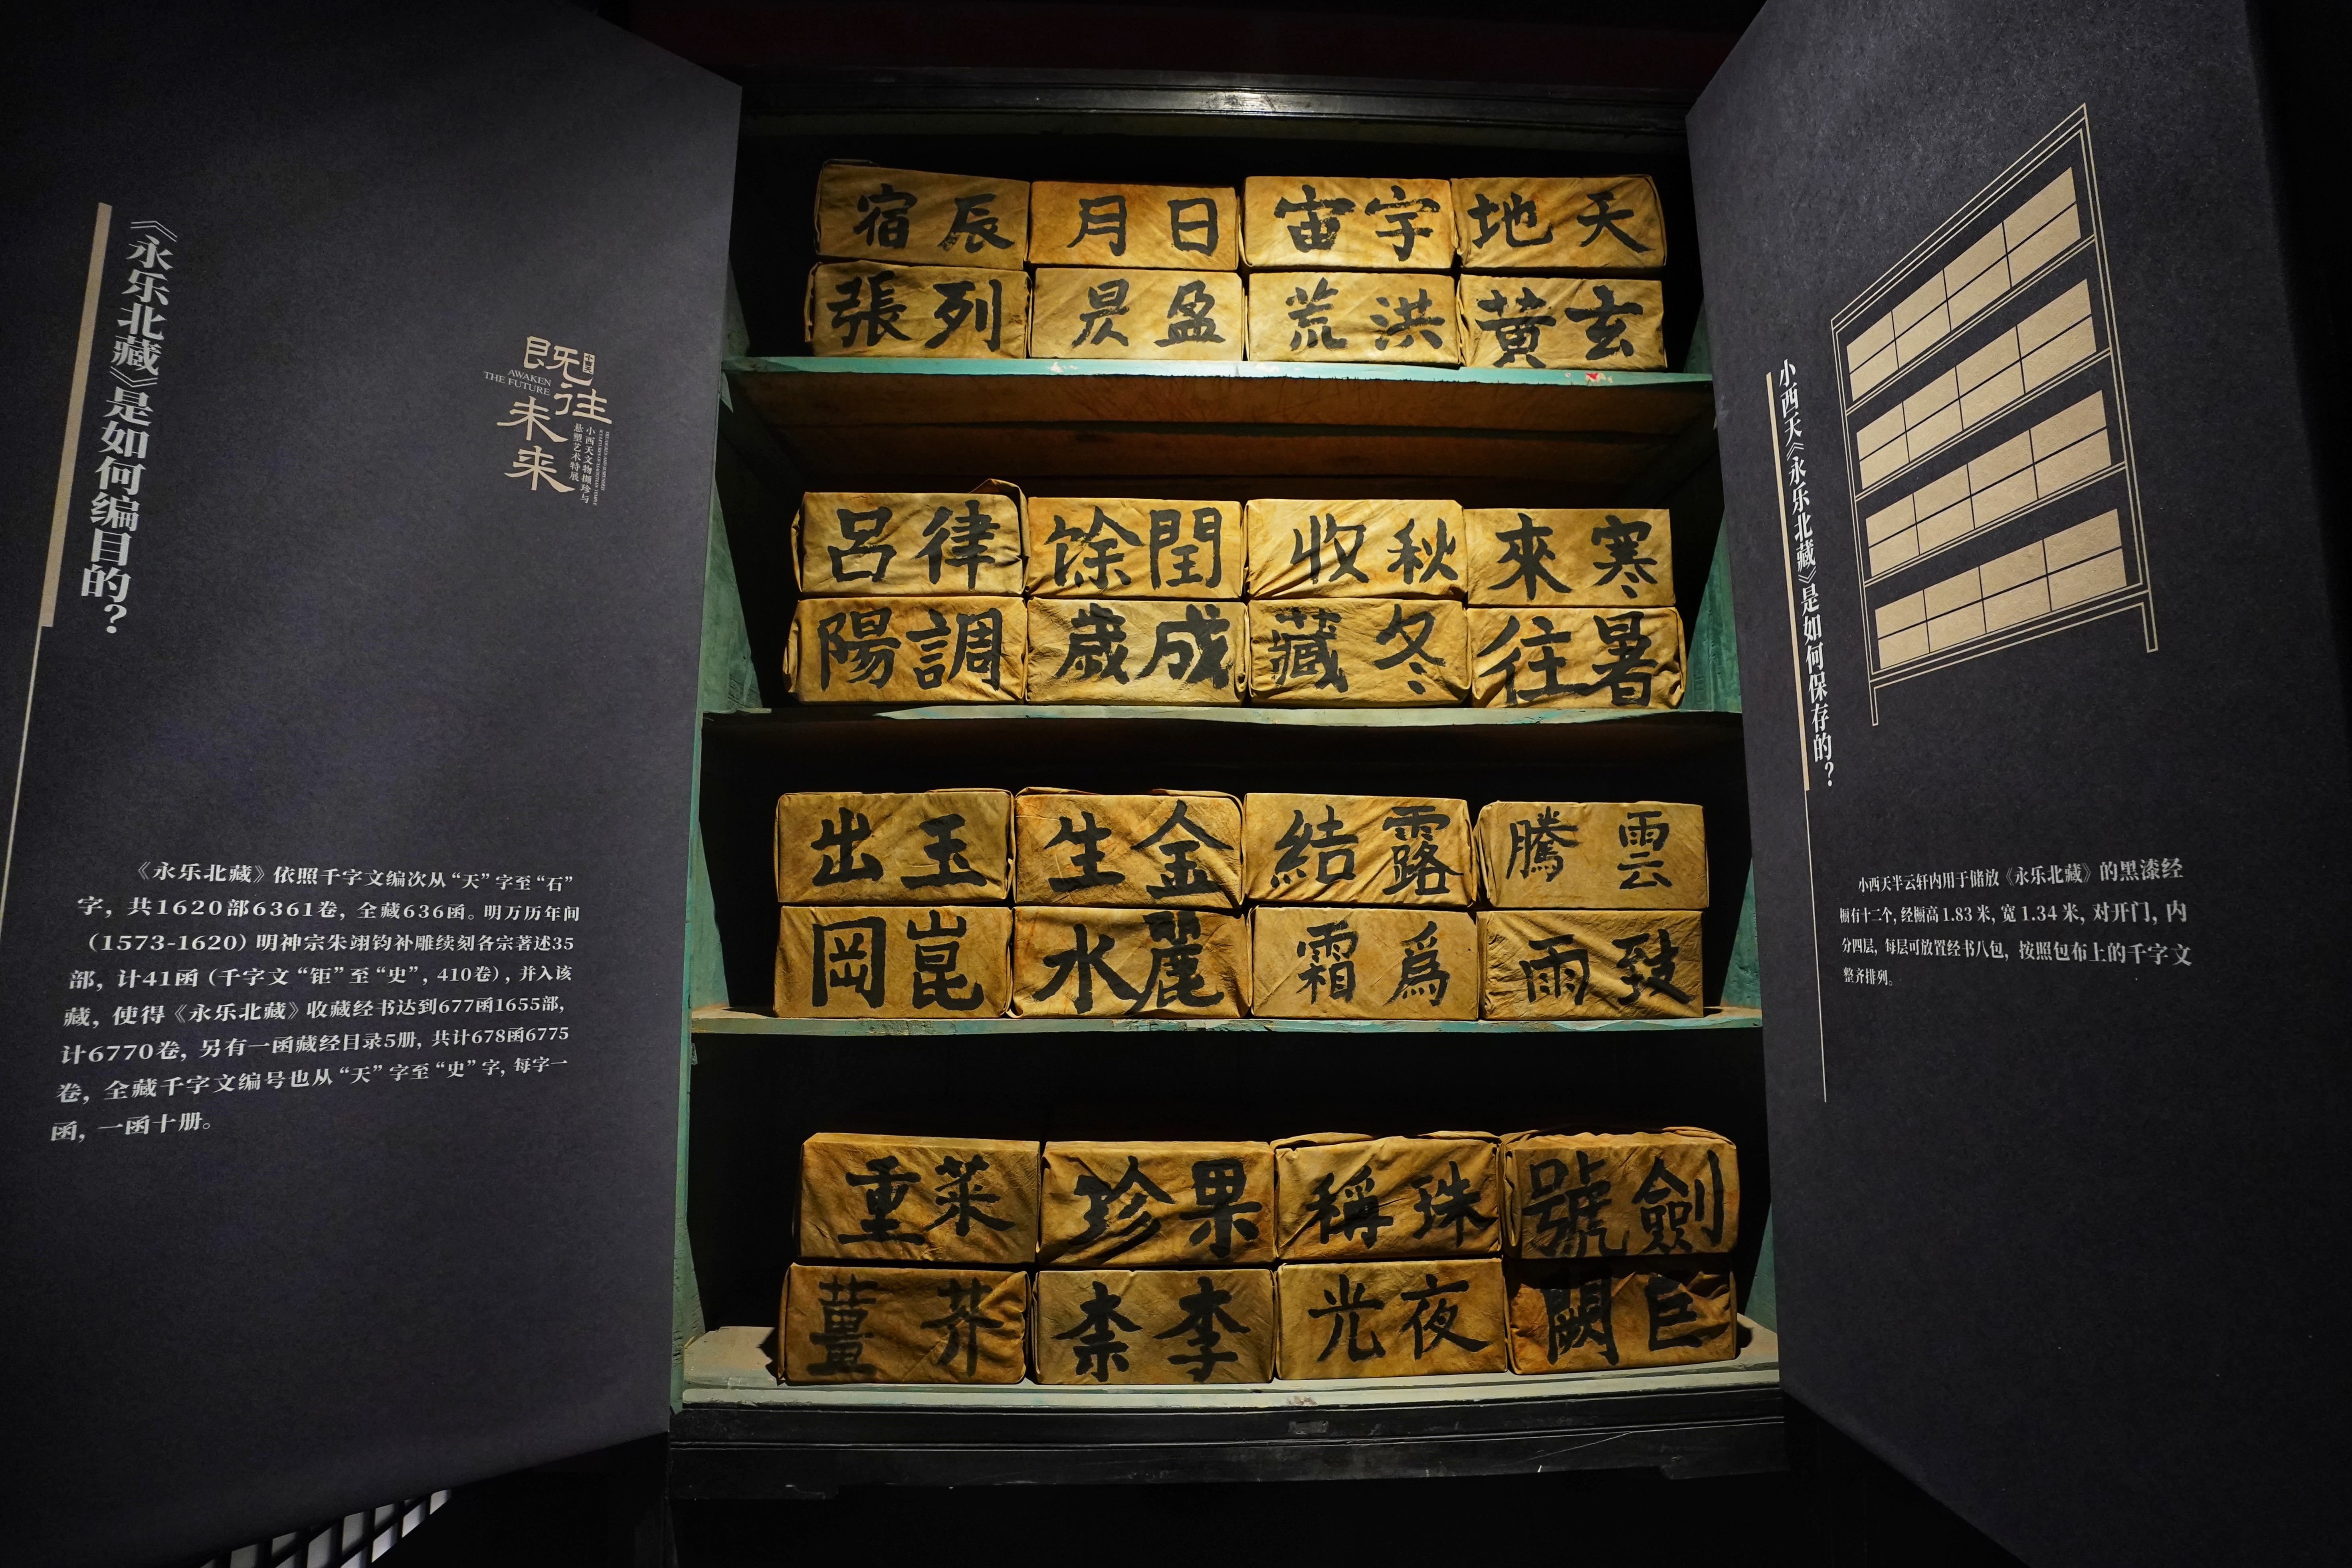 《永乐北藏》是如何编目的？
十城巡
既往
未来
AWAKEN
THE FUTURE
小西天文物撷珍与
悬塑艺术特展
《永乐北藏》依照千字文编次从“天”字至“石”
字，共1620部6361卷，全藏636函。明万历年间
（1573-1620）明神宗朱翊钧补雕续刻各宗著述35
部，计41函（千字文“钜”至“史”，410卷），并入该
藏，使得《永乐北藏》收藏经书达到677函1655部，
计6770卷，另有一函藏经目录5册，共计678函6775
卷，全藏千字文编号也从“天”字至“史”字，每字一
函，一函十册。
天地
宇宙
日月
辰宿
玄黃
洪荒
盈昃
列張
寒來
秋收
閏馀
律呂
暑往
冬藏
成歲
調陽
雲騰
露結
金生
玉出
致雨
爲霜
麗水
崑岡
劍號
珠稱
果珍
菜重
巨闕
夜光
李柰
芥薑
小西天《永乐北藏》是如何保存的？
小西天半云轩内用于储放《永乐北藏》的黑漆经
橱有十二个，经橱高1.83米，宽1.34米，对开门，内
分四层，每层可放置经书八包，按照包布上的千字文
整齐排列。